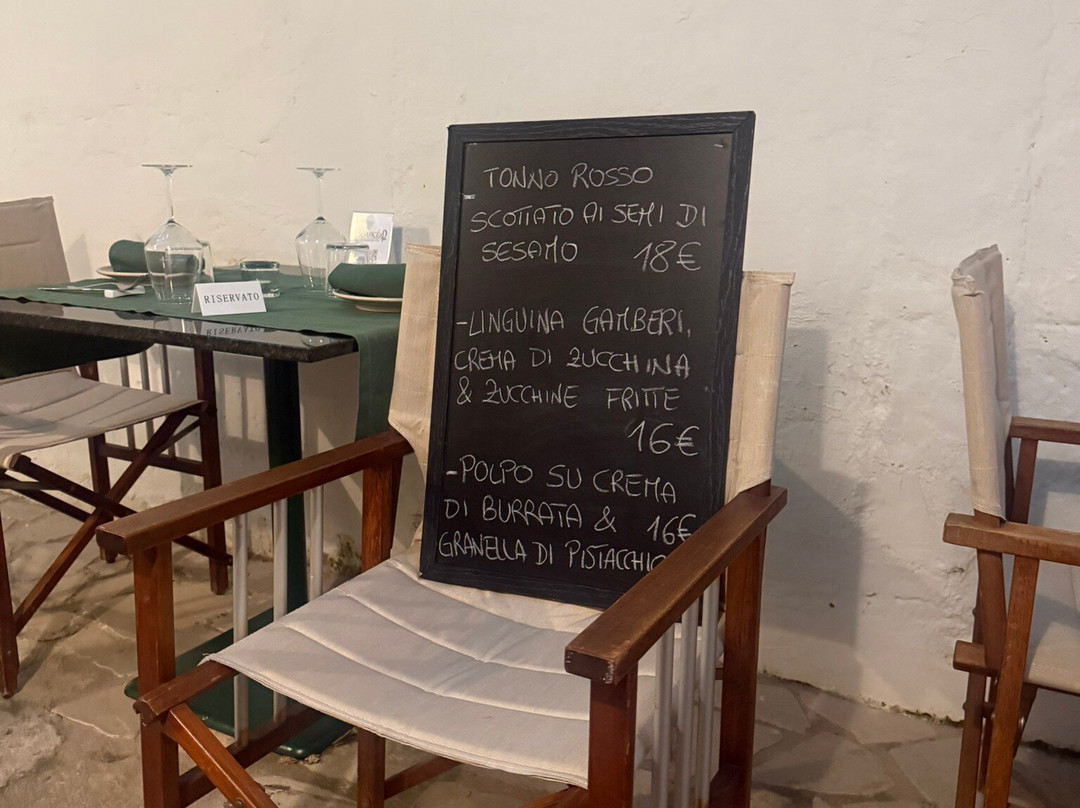 TONNO ROSSO
SCOTTATO AI SEMI DI
SESAMO 18€
-LINGUINA GAMBERI,
CREMA DI ZUCCHINA
& ZUCCHINE FRITTE
16€
-POLPO SU CREMA
DI BURRATA & 16€
GRANELLA DI PISTACCHIO
RISERVATO